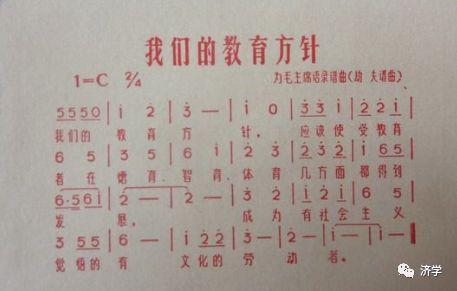 我们的教育方针
1=C 2/4 为毛主席语录谱曲(劫夫谱曲)
5550 | i 2 | 3 — | i 0 | 33 i | 22 i |
我们的 教育方 针, 应该使受教育
6 5 | 3 5 | 6 i | 2 3 | 232 | i 65 |
者在德育、智育、体育几方面都得到
6·561 | 2 — | 2 — | 3 2 | i 2 i | 6 5 |
发展, 成为有社会主义
3 55 | 6 — | i 22 | 3 — | 2 — | i — | i — |
觉悟的有 文化的劳动者。
济学